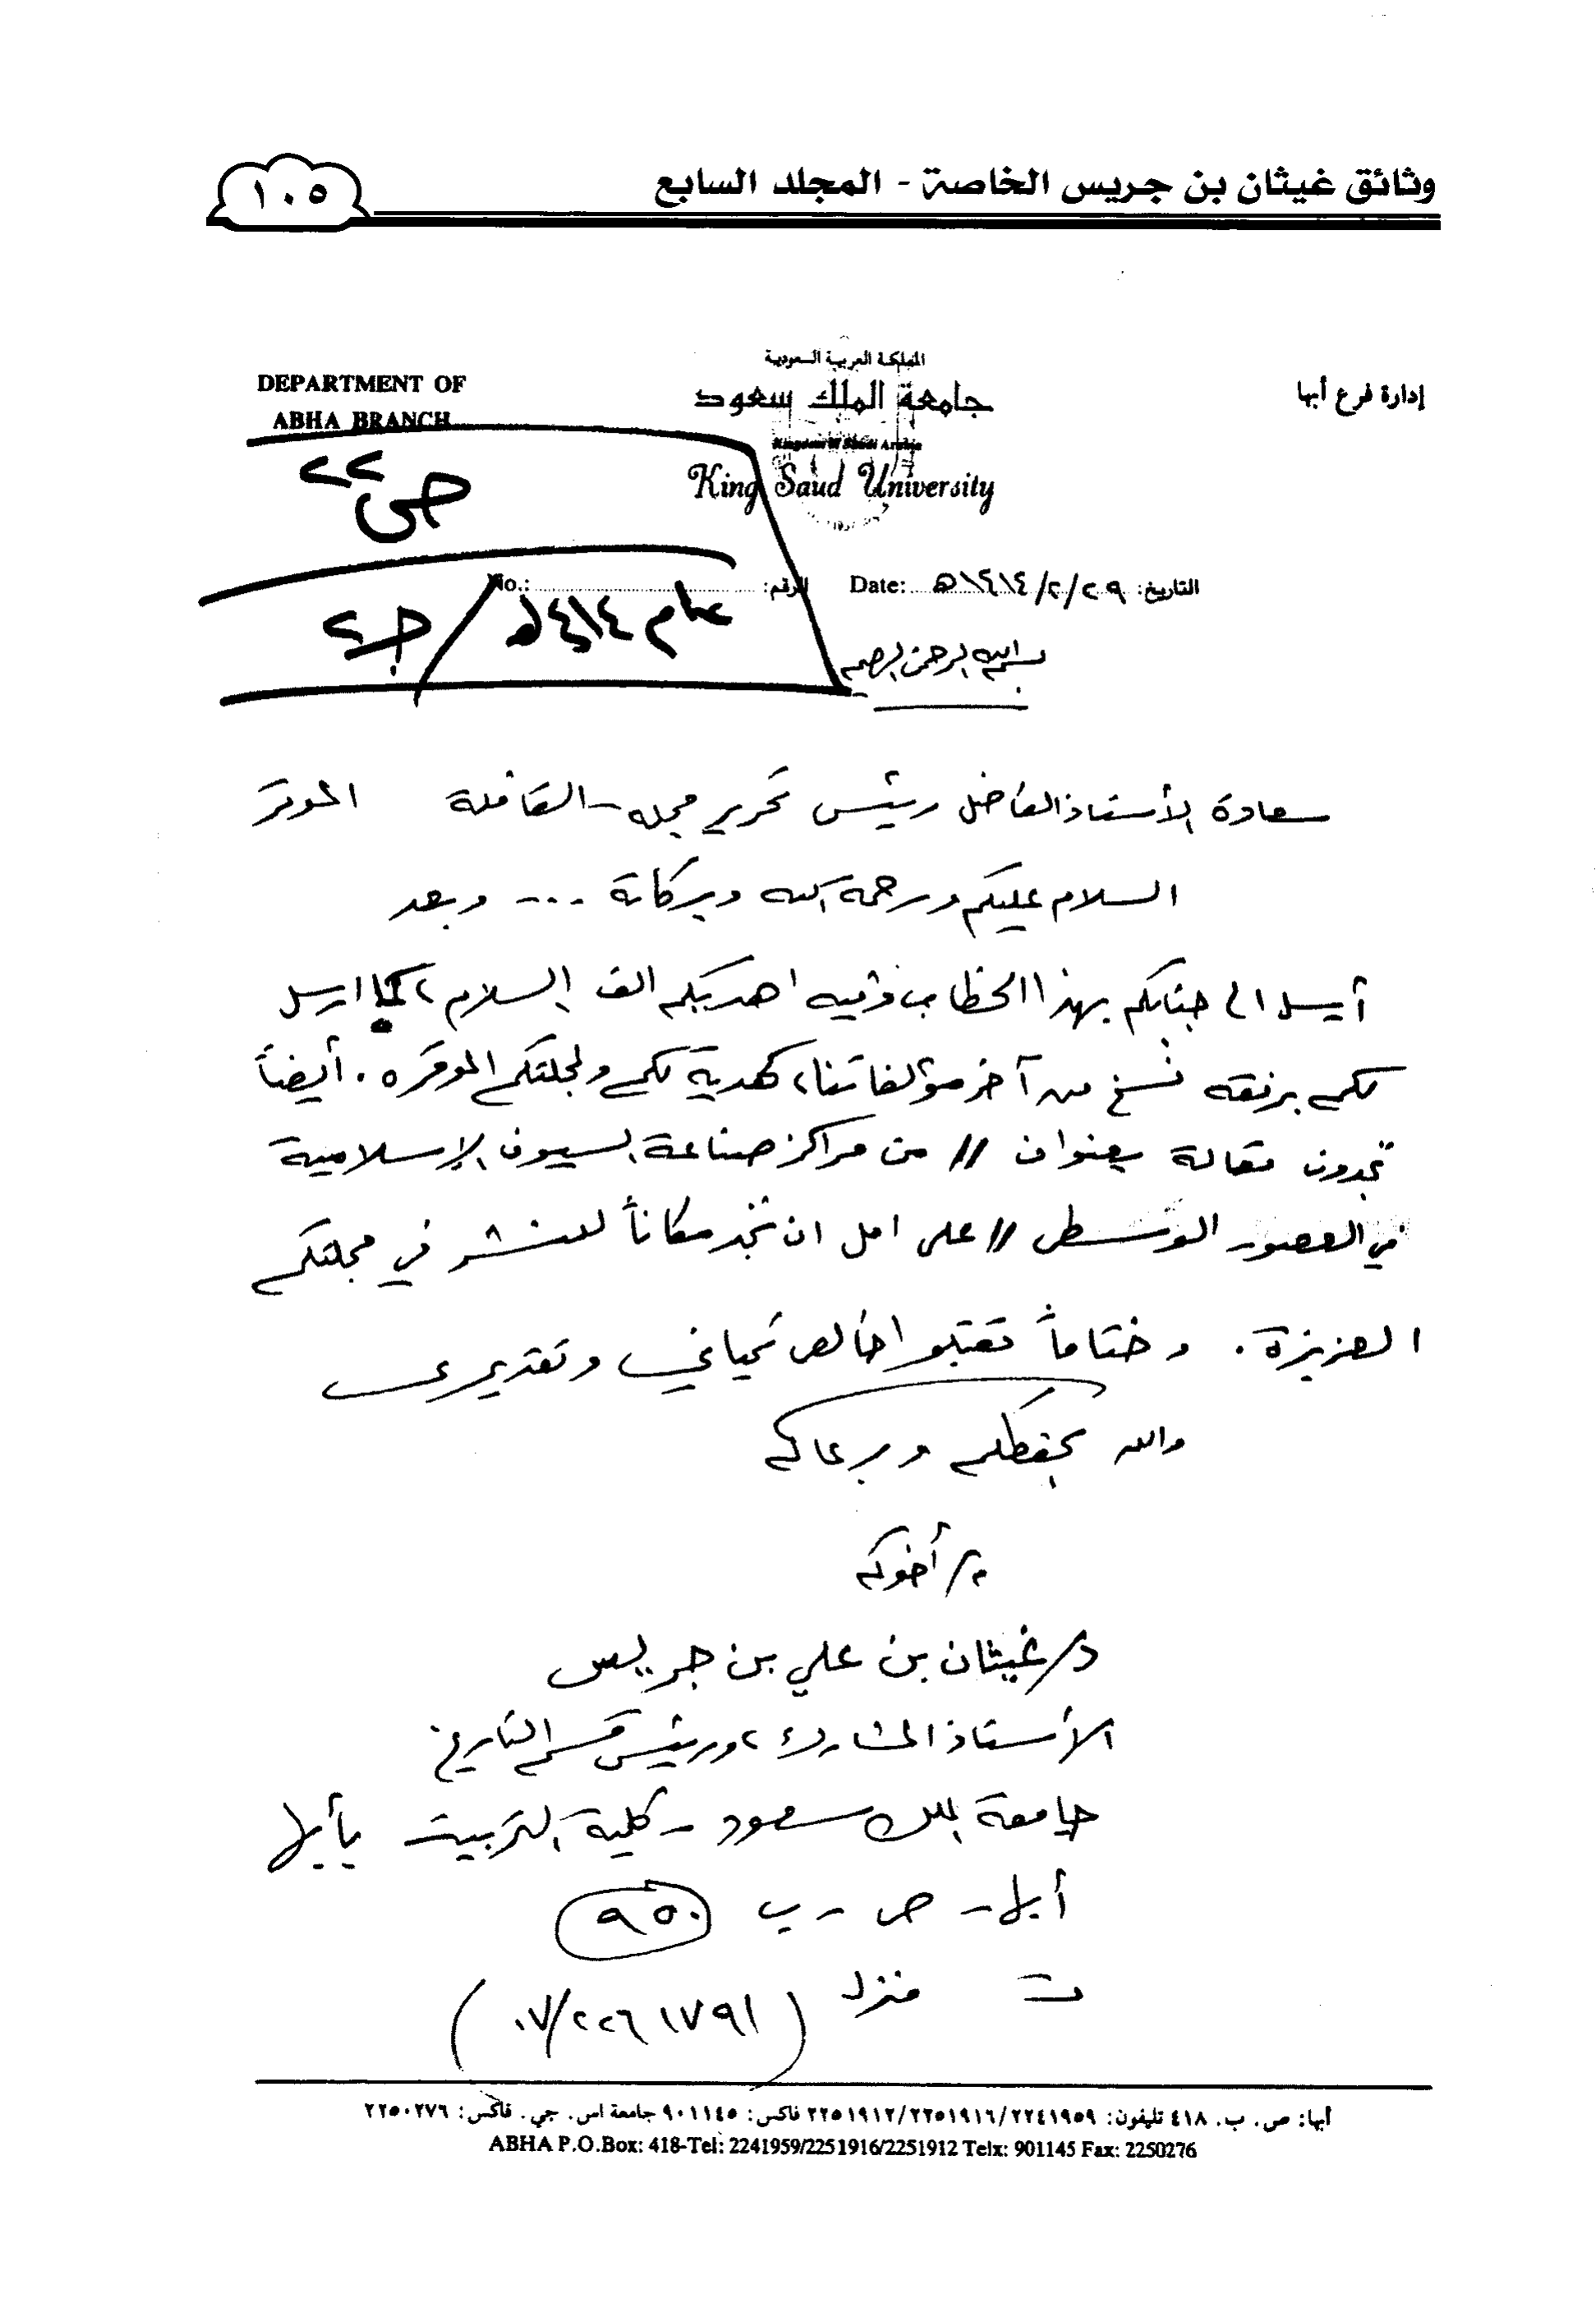 وثائق غيثان بن جريس الخاصة - المجلد السابع
١٠٥
إدارة فرع أبها
المملكة العربية السعودية
جامعة الملك سعود
Kingdom of Saudi Arabia
King Saud University
DEPARTMENT OF
ABHA BRANCH
ص ٢٢
التاريخ: ٢٩/٢/١٤١٤هـ Date:
الرقم: No.:
عام ١٤١٤هـ / ج٢
بسم الله الرحمن الرحيم
سعادة الأستاذ الفاضل رئيس تحرير مجلة القافلة الموقر
السلام عليكم ورحمة الله وبركاته ... وبعد
الى جنابكم بهذا الخطاب وفيه اهديكم الف السلام، كما ارسل
لكم برفقه نسخ من آخر مؤلفاتنا، كهدية لكم ولمجلتكم الموقره. أيضاً
تجدون مقالة بعنوان // من مراكز صناعة السيوف الإسلامية
في العصور الوسطى // على امل ان تجد مكاناً للنشر في مجلتكم
العزيزة. وختاماً تقبلوا خالص تحياتي وتقديري
والله يحفظكم ويرعاكم
أخوكم
د/ غيثان بن علي بن جريس
الأستاذ المشارك، ورئيس قسم التاريخ
جامعة الملك سعود - كلية التربية بأبها
أبها - ص - ب ٩٥٠
ت منزل (٠٧/٢٢٦١٧٩١)
أبها: ص. ب. ٤١٨ تليفون: ٢٢٤١٩٥٩/٢٢٥١٩١٦/٢٢٥١٩١٢ فاكس: ٩٠١١٤٥ جامعة اس. جي. فاكس: ٢٢٥٠٢٧٦
ABHA P.O.Box: 418-Tel: 2241959/2251916/2251912 Telx: 901145 Fax: 2250276